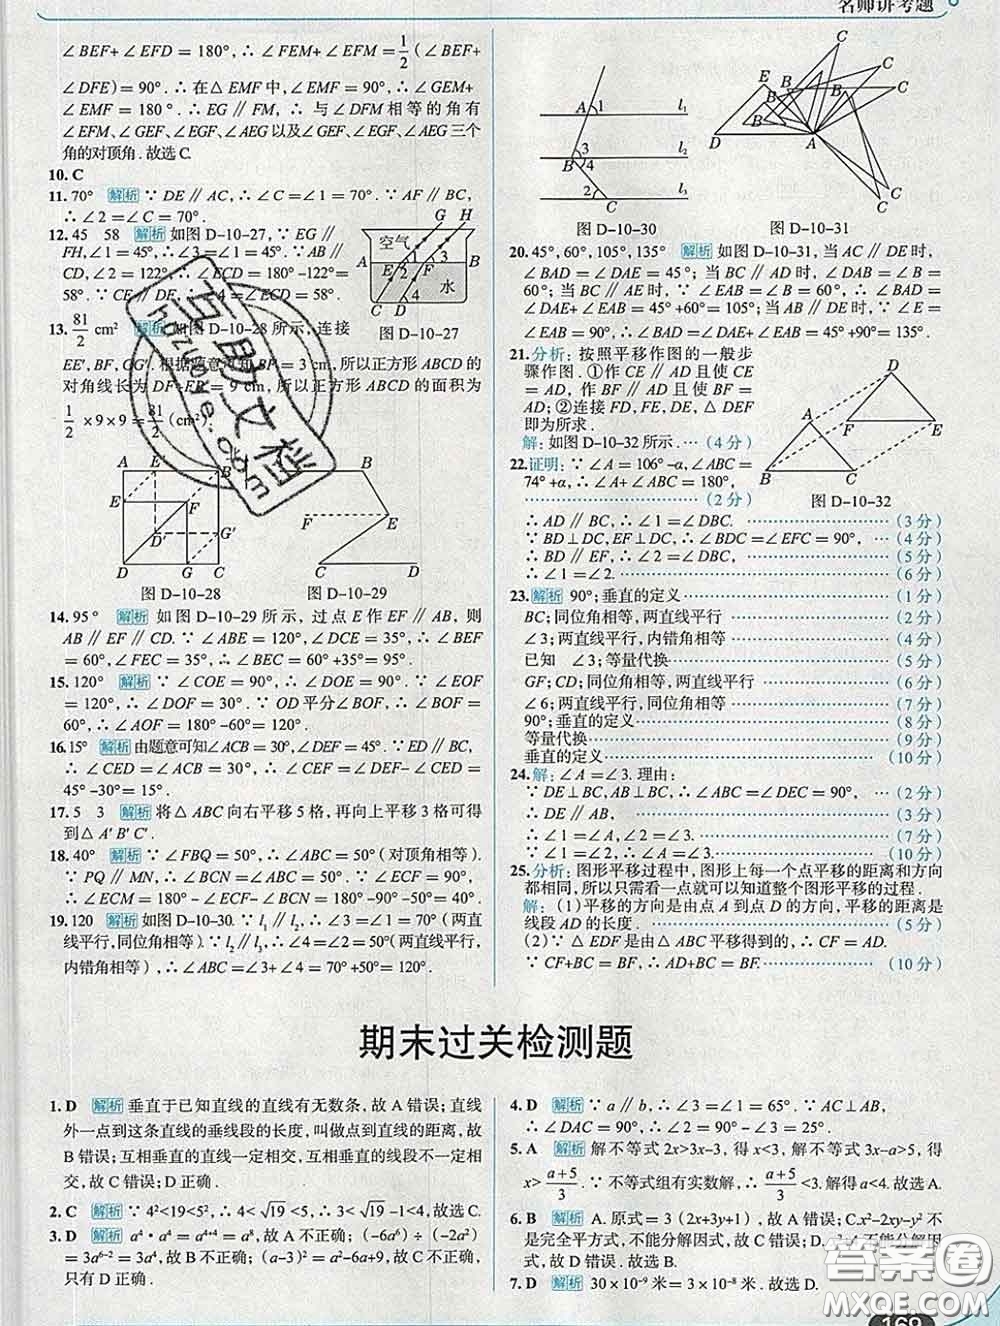 名师讲考题
∠BEF+∠EFD=180°,∴∠FEM+∠EFM=1/2(∠BEF+
∠DFE)=90°.∴在△EMF中,∠EMF=90°.∴∠GEM+
∠EMF=180°.∴EG∥FM,∴与∠DFM相等的角有
∠EFM、∠GEF、∠EGF、∠AEG以及∠GEF、∠EGF、∠AEG三个
角的对顶角.故选C.
10. C
11. 70° 解析 ∵DE∥AC,∴∠C=70°.∵AF∥BC,
∴∠2=∠C=70°.
12. 45 58 解析 如图D-10-27,∵EG∥
FH,∠1=45°,∴∠3=∠1=45°.∵AB∥
CD,∠2=122°,∴∠ECD=180°-122°=
58°.∵CE∥DF,∴∠4=∠ECD=58°.
G H
空气
A B
1 3
E 2 F
4 水
C D
图D-10-27
13. 81/2 cm² 解析 如图D-10-28所示,连接
EE′,BF,GG′.根据题意可知BF=3 cm,所以正方形ABCD的
对角线长为DF+BF=9 cm,所以正方形ABCD的面积为
1/2×9×9=81/2(cm²).
A E′ B
E F
D′ G′
D G C
图D-10-28
A B
F E
C D
图D-10-29
14. 95° 解析 如图D-10-29所示,过点E作EF∥AB,则
AB∥EF∥CD.∵∠ABE=120°,∠DCE=35°,∴∠BEF
=60°,∠FEC=35°,∴∠BEC=60°+35°=95°.
15. 120° 解析 ∵∠COE=90°,∴∠DOE=90°.∵∠EOF
=120°,∴∠DOF=30°.∵OD平分∠BOF,∴∠BOF
=60°,∴∠AOF=180°-60°=120°.
16. 15° 解析 由题意可知∠ACB=30°,∠DEF=45°.∵ED∥BC,
∴∠CED=∠ACB=30°,∴∠CEF=∠DEF-∠CED=
45°-30°=15°.
17. 5 3 解析 将△ABC向右平移5格,再向上平移3格可得
到△A′B′C′.
18. 40° 解析 ∵∠FBQ=50°,∴∠ABC=50°(对顶角相等).
∵PQ∥MN,∴∠ECM=∠ABC=50°.∵∠ECF=90°,
∴∠ECM=180°-∠ECF-∠BCN=180°-90°-50°=40°.
19. 120 解析 如图D-10-30.∵l₁∥l₂,∴∠3=∠1=70°(两直
线平行,同位角相等).∵l₂∥l₃,∴∠4=∠2=50°(两直线平行,
内错角相等),∴∠ABC=∠3+∠4=70°+50°=120°.
A 1 l₁
3 l₂
B 4
2 l₃
C
图D-10-30
E B B B C C C
D A C C
图D-10-31
20. 45°,60°,105°,135° 解析 如图D-10-31,当AC∥DE时,
∠BAD=∠DAE=45°;当BC∥AD时,∠DAB=∠B=
60°;当BC∥AE时,∵∠EAB=∠B=60°,∴∠BAD=
∠DAE+∠EAB=45°+60°=105°;当AB∥DE时,∵∠E=
∠EAB=90°,∴∠BAD=∠DAE+∠EAB=45°+90°=135°.
21. 分析:按照平移作图的一般步
骤作图.①作CE∥AD且使CE
=AD,作BF∥AD且使BF=
AD;②连接FD,FE,DE,△DEF
即为所求.
解:如图D-10-32所示.…(4分)
D
A F E
B C
图D-10-32
22. 证明:∵∠A=106°-α,∠ABC=
74°+α,∴∠A+∠ABC=180°,
(2分)
∴AD∥BC,∴∠1=∠DBC.(3分)
∵BD⊥DC,EF⊥DC,∴∠BDC=∠EFC=90°,(4分)
∴BD∥EF,∴∠2=∠DBC,(5分)
∴∠1=∠2.(6分)
23. 解析 90°;垂直的定义(1分)
BC;同位角相等,两直线平行(2分)
∠3;两直线平行,内错角相等(4分)
已知 ∠3;等量代换(5分)
GF;CD;同位角相等,两直线平行(6分)
∠6;两直线平行,同位角相等(7分)
90°;垂直的定义(8分)
等量代换(9分)
垂直的定义(10分)
24. 解:∠A=∠3.理由:
∵DE⊥BC,AB⊥BC,∴∠ABC=∠DEC=90°,(2分)
∴DE∥AB,(3分)
∴∠1=∠A,∠2=∠3.(7分)
∵∠1=∠2,∴∠A=∠3.(10分)
25. 分析:图形平移过程中,图形上每一个点平移的距离和方向
都相同,所以只需看一点就可以知道整个图形平移的过程.
解:(1)平移的方向是由点A到点D的方向,平移的距离是
线段AD的长度.(5分)
(2)∵△EDF是由△ABC平移得到的,∴CF=AD.
∵CF+BC=BF,∴AD+BC=BF.(10分)
期末过关检测题
1. D 解析 垂直于已知直线的直线有无数条,故A错误;直线
外一点到这条直线的垂线段的长度,叫做点到直线的距离,故
B错误;互相垂直的直线一定相交,互相垂直的线段不一定相
交,故C错误;D正确.
2. C 解析 ∵4²<19<5²,∴4<√19<5,∴3<√19-1<4,故选C.
3. D 解析 a⁴·a⁴=a⁴⁺⁴=a⁸,故A不正确;(-6a⁶)÷(-2a²)
=3a⁶⁻²=3a⁴,故B不正确;(a-3)²=a²-6a+9,故C不正确,
只有D正确.
4. D 解析 ∵a∥b,∴∠1=∠ABC=65°.∵AC⊥AB,
∴∠DAC=90°-∠ABC=25°.
5. A 解析 解不等式2x>3x-3,得x<3,解不等式3x-a>5,得
x>(a+5)/3.∵不等式组有实数解,∴(a+5)/3<3.解得a<4.故选A.
6. B 解析 A.原式=3(2x+3y+1),故A错误;C.x²-2xy-y²不
是完全平方式,不能分解因式,故C错误;D.
不能分解因
式,故D错误.故选B.
7. D 解析 30×10⁻⁹米=3×10⁻⁸米.故选D.
169
互助文档
hdzuoye.com
答案圈
MXQE.COM